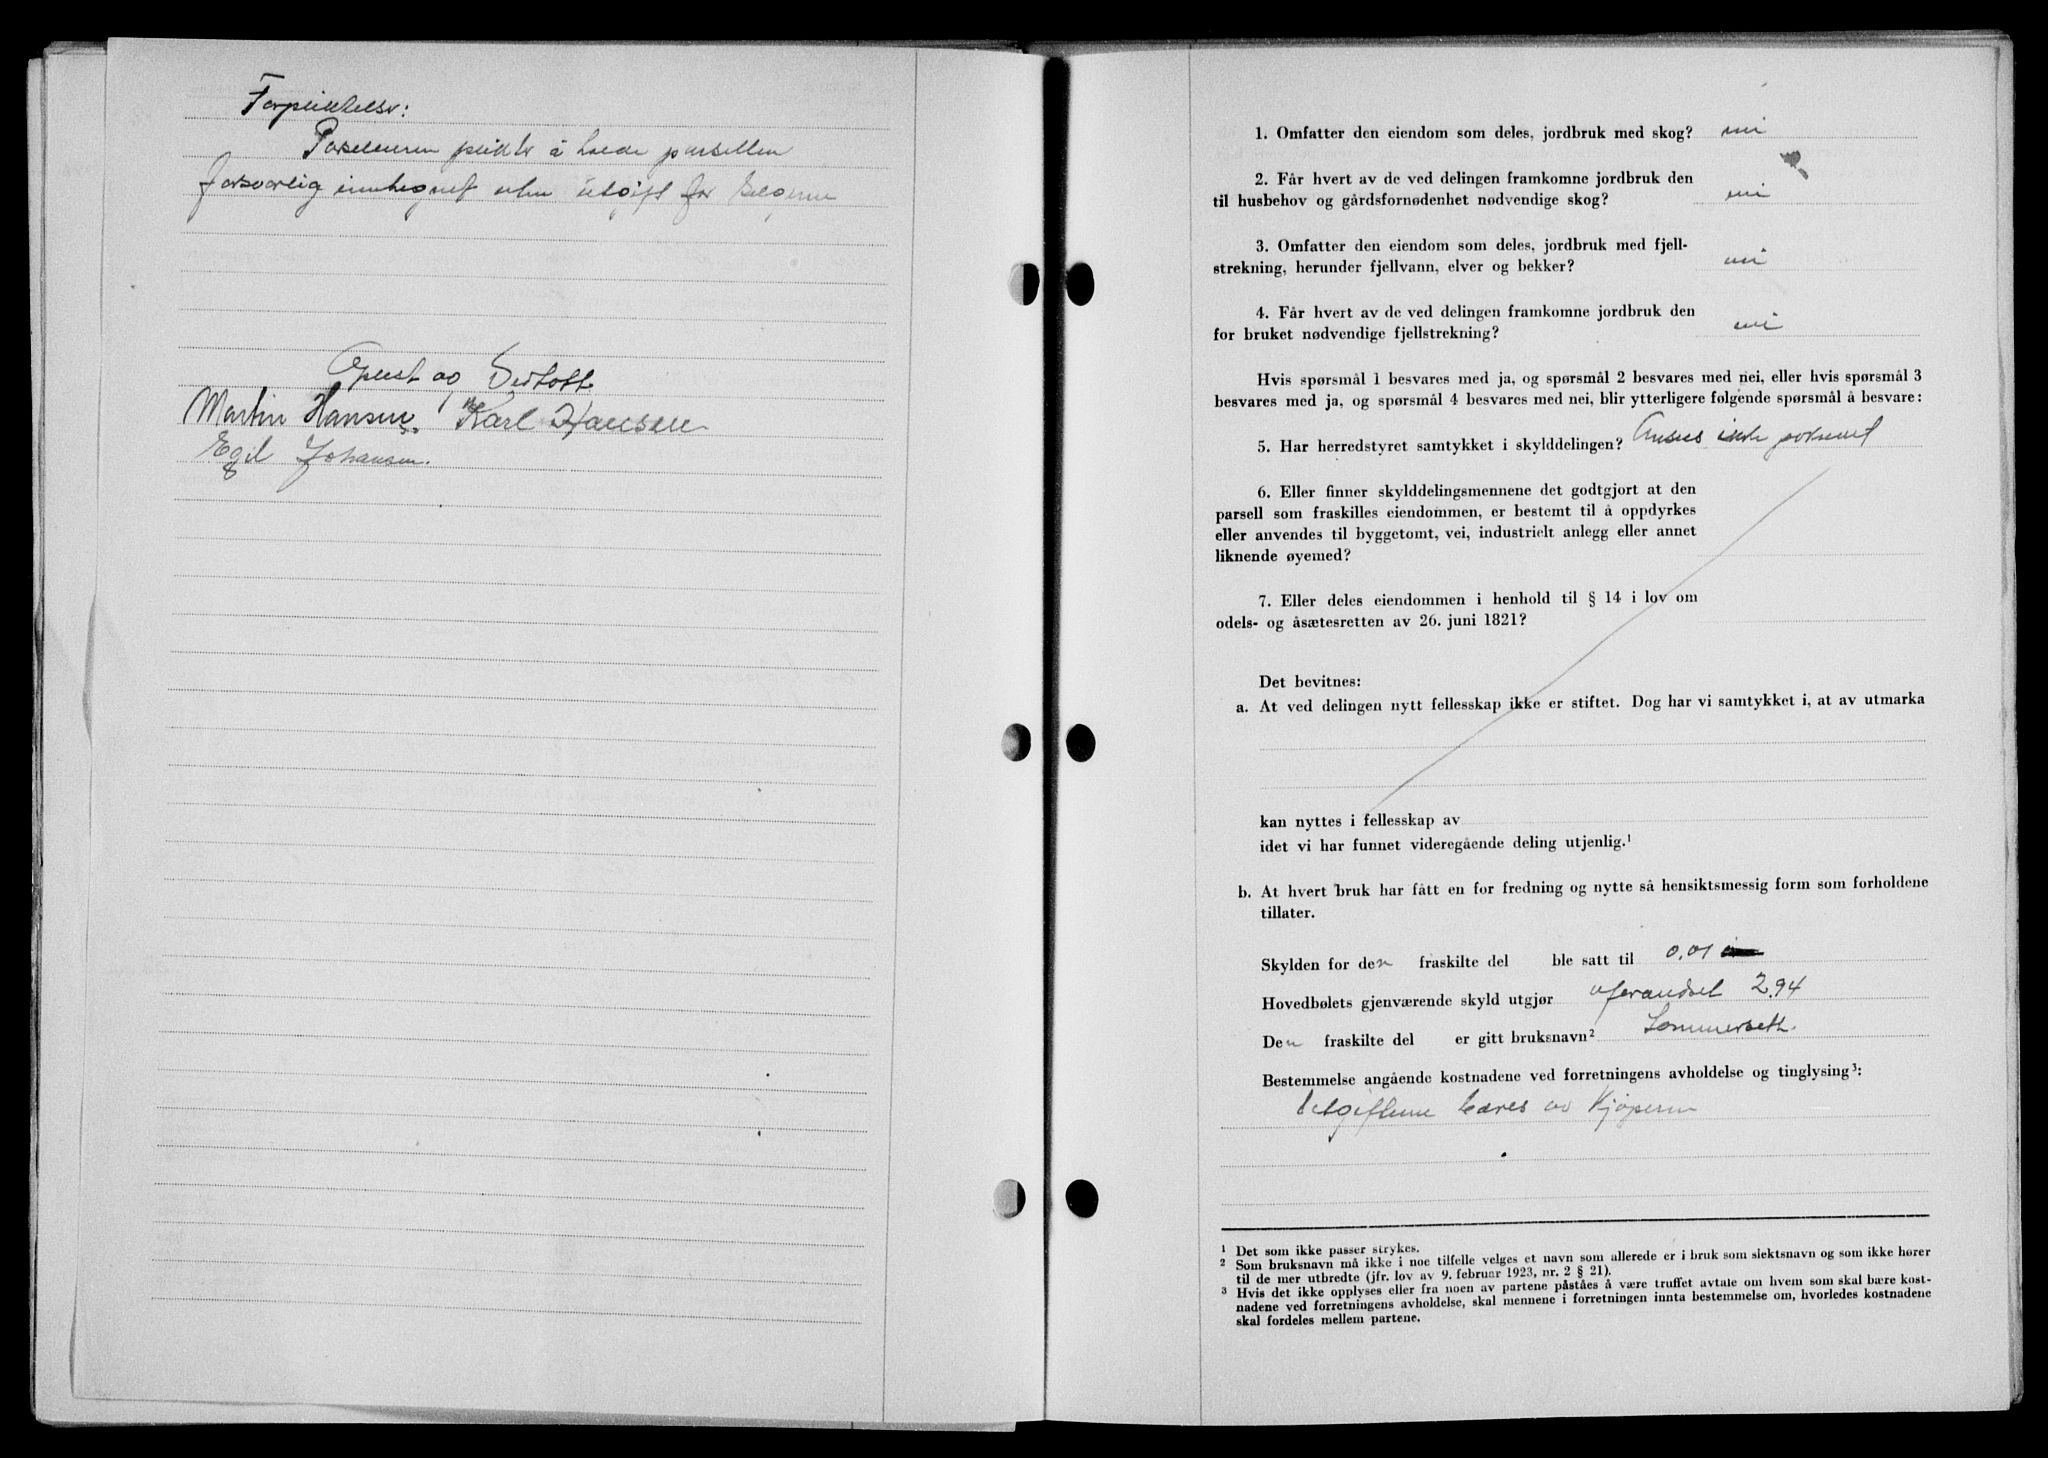 Forpliktelse:
Parseleieren plikter å holde parsellen
forsvarlig innhegnet uten utgift for selgerne
Oplest og Vedtatt
Martin Hansen. Karl Hansen
Egil Johansen.
1. Omfatter den eiendom som deles, jordbruk med skog? nei
2. Får hvert av de ved delingen framkomne jordbruk den
til husbehov og gårdsfornødenhet nødvendige skog? nei
3. Omfatter den eiendom som deles, jordbruk med fjell-
strekning, herunder fjellvann, elver og bekker? nei
4. Får hvert av de ved delingen framkomne jordbruk den
for bruket nødvendige fjellstrekning? nei
Hvis spørsmål 1 besvares med ja, og spørsmål 2 besvares med nei, eller hvis spørsmål 3
besvares med ja, og spørsmål 4 besvares med nei, blir ytterligere følgende spørsmål å besvare:
5. Har herredstyret samtykket i skylddelingen? Ansees ikke
6. Eller finner skylddelingsmennene det godtgjort at den
parsell som fraskilles eiendommen, er bestemt til å oppdyrkes
eller anvendes til byggetomt, vei, industrielt anlegg eller annet
liknende øyemed?
7. Eller deles eiendommen i henhold til § 14 i lov om
odels- og åsætesretten av 26. juni 1821?
Det bevitnes:
a. At ved delingen nytt fellesskap ikke er stiftet. Dog har vi samtykket i, at av utmarka
kan nyttes i fellesskap av
idet vi har funnet videregående deling utjenlig.¹
b. At hvert bruk har fått en for fredning og nytte så hensiktsmessig form som forholdene
tillater.
Skylden for den fraskilte del ble satt til 0,01
Hovedbølets gjenværende skyld utgjør uforandret 2,94
Den fraskilte del er gitt bruksnavn² Sommerseth.
Bestemmelse angående kostnadene ved forretningens avholdelse og tinglysing³:
Utgiftene bæres av Kjøperen
¹ Det som ikke passer strykes.
² Som bruksnavn må ikke i noe tilfelle velges et navn som allerede er i bruk som slektsnavn og som ikke hører
til de mer utbredte (jfr. lov av 9. februar 1923, nr. 2 § 21).
³ Hvis det ikke opplyses eller fra noen av partene påståes å være truffet avtale om hvem som skal bære kost-
nadene ved forretningens avholdelse, skal mennene i forretningen innta bestemmelse om, hvorledes kostnadene
skal fordeles mellem partene.